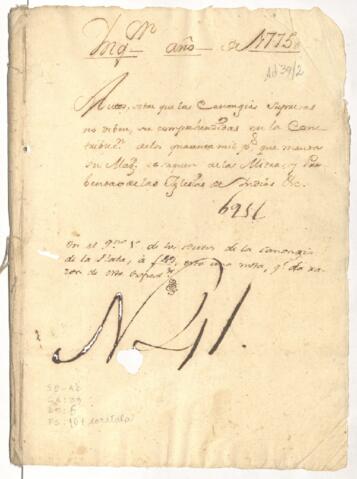 Ynqn. año de 1775
Ad 39/2
Autos, sobre que las Canongias Supresas
no deben, ser comprehendidas en la Con
tribucn. delos quarenta mil ps. que manda
su Mag. se saquen de las Mitras, y Pre
bendas de las Yglesias de Yndias &c.
6951
En el qno. 1º de los autos de la Canongia
de la Plata, à f
esta una nota, qe. da ra
zon de este expedte.
N 21.
SO-AD
CA: 39
DO: 2
FS: 10 + caratula